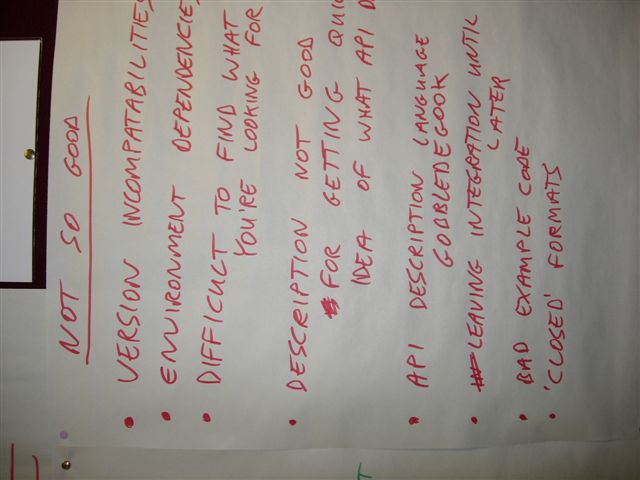 NOT SO GOOD
• VERSION INCOMPATABILITIES
• ENVIRONMENT DEPENDENCIE
• DIFFICULT TO FIND WHAT
YOU'RE LOOKING FOR
• DESCRIPTION NOT GOOD
FOR GETTING QUIC
IDEA OF WHAT API D
• API DESCRIPTION LANGUAGE
GOBBLEDEGOOK
• LEAVING INTEGRATION UNTIL
LATER
• BAD EXAMPLE CODE
• 'CLOSED' FORMATS